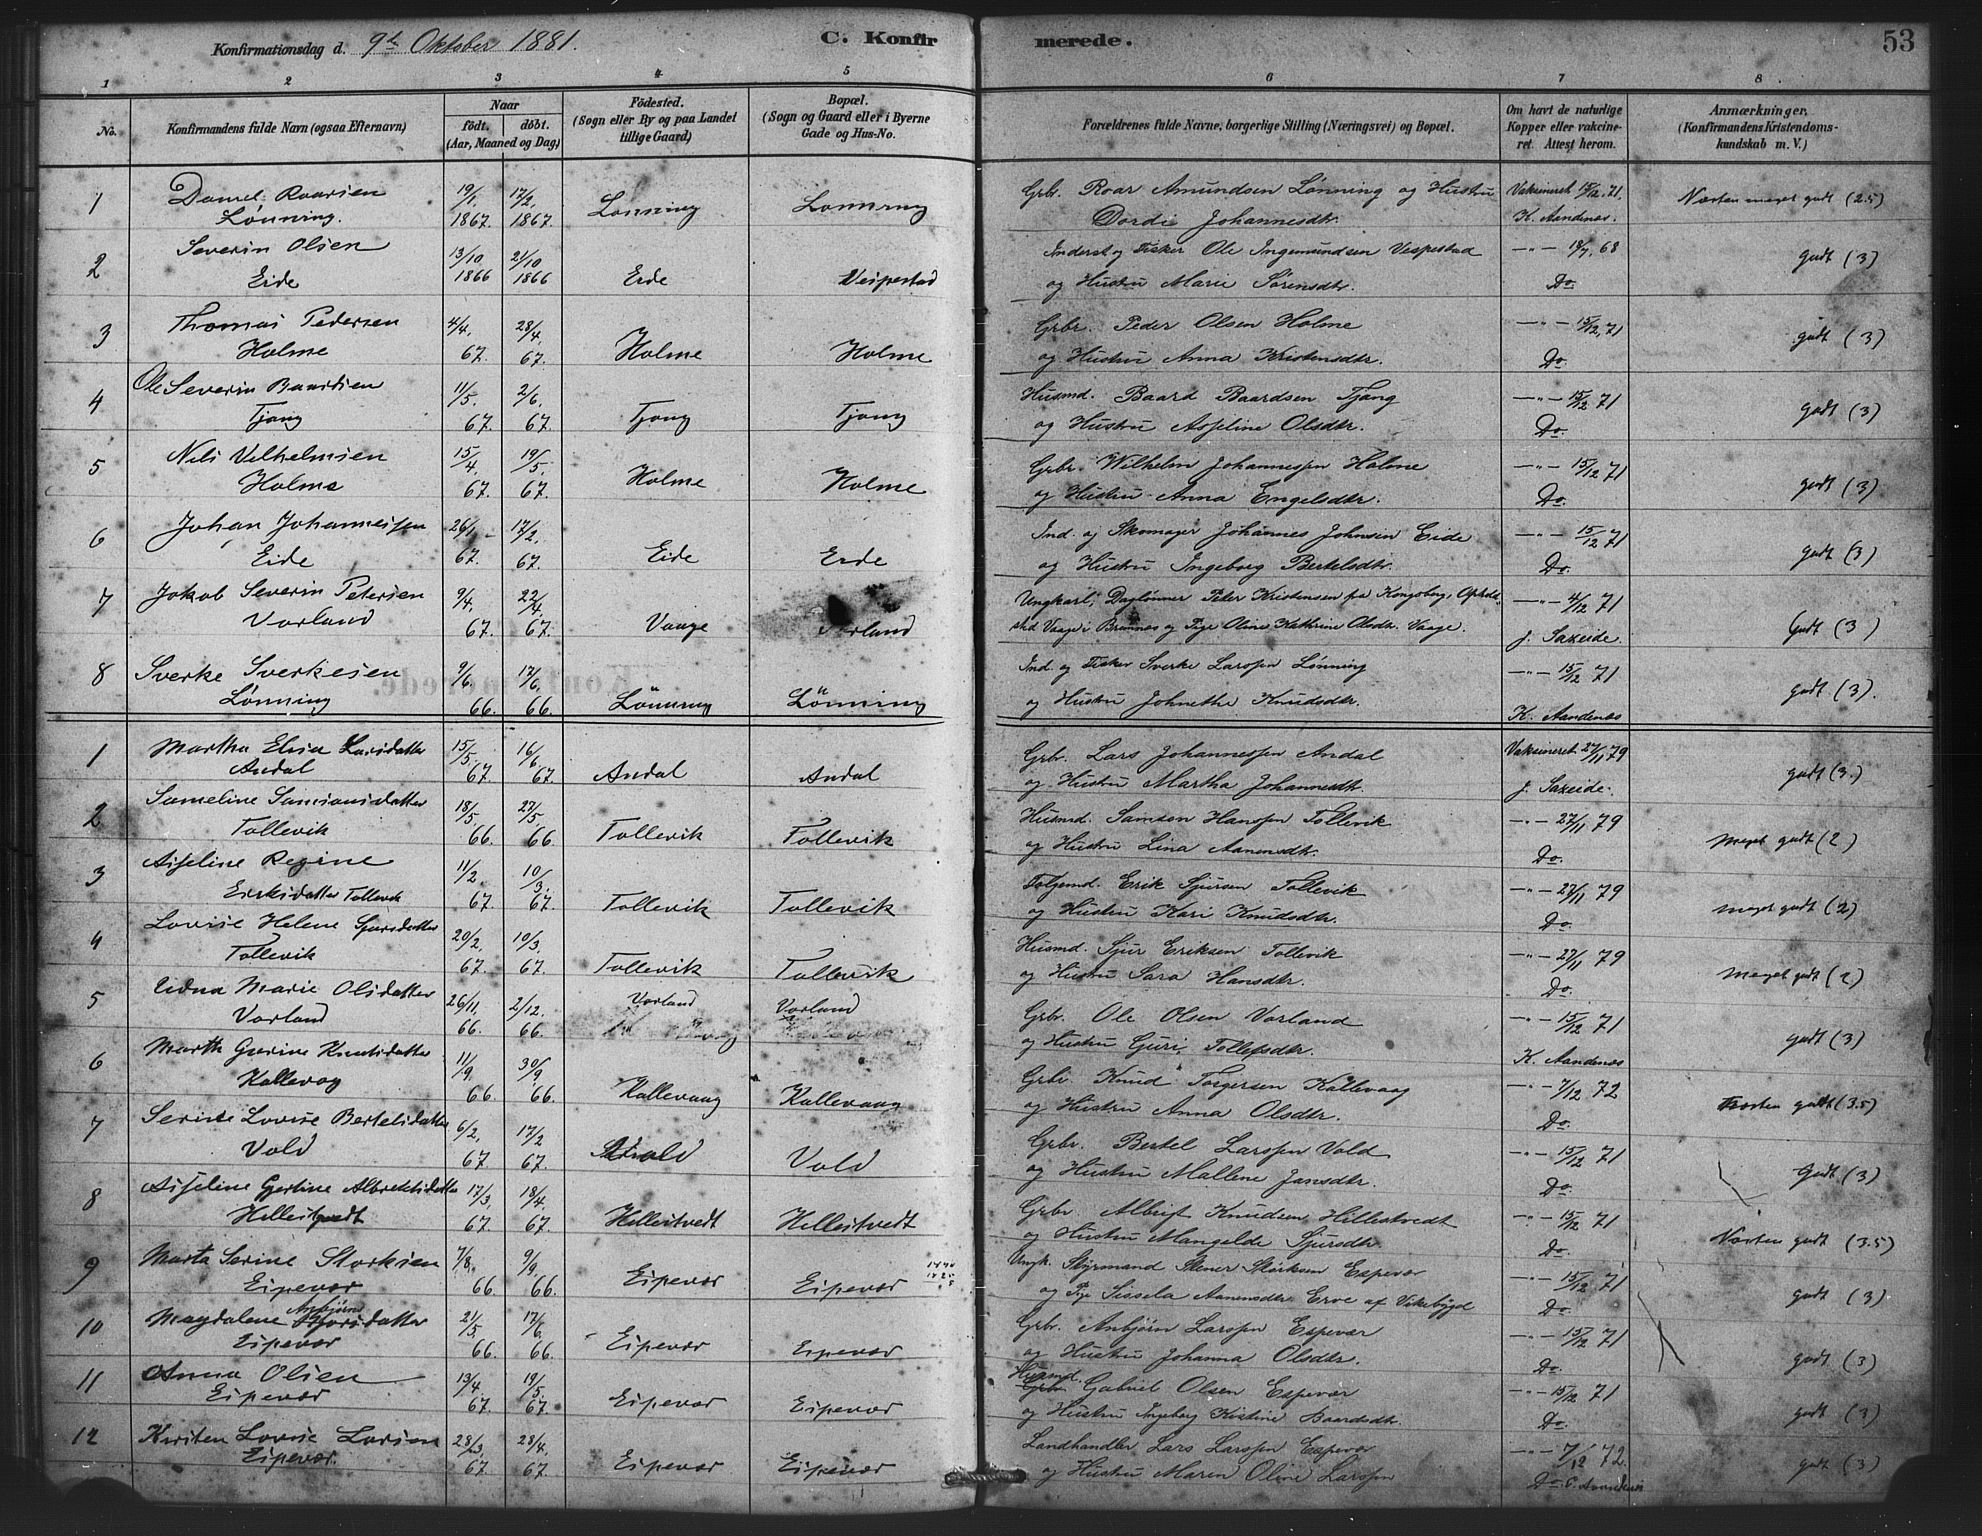 Konfirmationsdag d. 9de Oktober 1881.
C. Konfirmerede.
53
1 2 3 4 5 6 7 8
No. Konfirmandens fulde Navn (ogsaa Efternavn) Naar födt. döbt. (Aar, Maaned og Dag) Födested. (Sogn eller By og paa Landet tillige Gaard) Bopæl. (Sogn og Gaard eller i Byerne Gade og Hus-No. Forældrenes fulde Navne, borgerlige Stilling (Næringsvei) og Bopæl. Om havt de naturlige Kopper eller vakcineret. Attest herom. Anmærkninger, (Konfirmandens Kristendomskundskab m. V.)
1 Daniel Roarsen Lønning. 19/1 1867. 17/2 1867. Lønning Lønning Grbr. Roar Amundsen Lønning og Hustru Dordi Johannesdtr. Vaksineret 15/12 71. K. Aandenæs. Næsten meget godt (2.5)
2 Severin Olsen Eide 13/10 1866 21/10 1866 Eide Vespestad Inderst og Fisker Ole Ingemundsen Vespestad og Hustru Marie Sörensdtr. —"— 18/7 68 Do. godt (3)
3 Thomas Pedersen Holme 4/4 67. 28/4 67. Holme Holme Grbr. Peder Olsen Holme og Hustru Anna Kristensdtr. —"— 15/12 71 Do. godt (3)
4 Ole Severin Baardsen Tjong 11/5. 67. 2/6. 67. Tjong Tjong Husmd. Baard Baardsen Tjang og Hustru Asseline Olsdtr. —"— 15/12 71 Do. godt (3)
5 Nils Vilhelmsen Holme 15/4 67. 19/5. 67. Holme Holme Grbr. Wilhelm Johannessen Holme og Hustru Anna Engelsdtr. —"— 15/12 71 Do. godt (3)
6 Johan Johannessen Eide 26/1 67. 17/2. 67. Eide Eide Ind. og Skomager Johannes Johnsen Eide og Hustru Ingeborg Bertelsdtr. —"— 15/12 71 Do. godt (3)
7 Jakob Severin Petersen Vorland 9/4 67. 22/4. 67. Vaage Vorland Ungkarl, Daglønner Peter Kristensen fra Kongsberg, Opholdssted Vaage i Bremnes og Pige Oline Kathrine Olsdtr. Vaage. —"— 4/12 71 J. Saxeide. Godt (3)
8 Sverke Sverkesen Lønning 9/6. 66. 17/6. 66. Lönning Lönning Ind. og Fisker Sverke Larssen Lønning og Hustru Johnethe Knudsdtr. —"— 15/12 71 K. Aandenæs godt (3).
1 Martha Elisa Larsdatter Andal 15/5. 67. 16/6 67. Andal Andal Grbr. Lars Johannessen Andal og Hustru Martha Johannesdtr. Vaksineret 27/11 79 J. Saxeide. godt (3.)
2 Sameline Samsonsdatter Tollevik 18/5. 66. 27/5. 66. Tollevik Tollevik Husmd. Samson Hanssen Tollevik og Hustru Lina Aanensdtr. —"— 27/11 79 Do. meget godt (2)
3 Asseline Regine Eriksdatter Tollevik 11/2. 67. 10/3. 67. Tollevik Tollevik Følgemd. Erik Sjursen Tollevik og Hustru Kari Knudsdtr. —"— 27/11 79 Do. meget godt (2)
4 Lovise Helene Sjursdatter Tollevik 20/2. 67. 10/3. 67. Tollevik Tollevik Husmd. Sjur Eriksen Tollevik og Hustru Sara Hansdtr. —"— 27/11 79 Do. meget godt (2)
5 Marie Olsdatter Vorland 26/11. 66. 2/12. 66. Vorland Vorland Grbr. Ole Olsen Vorland og Hustru Guri Tollefsdtr. —"— 15/12 71 K. Aandenæs godt (3)
6 Martha Gurine Knutsdatter Kallevag 11/9. 66 30/9. 66. Kallevaag Kallevaag Grbr. Knud Torgersen Kallevaag og Hustru Anna Olsdtr. —"— 7/12 72 Do. Næsten godt (3.5)
7 Serine Lovise Bertelsdatter Vold 6/2. 67. 17/2 67. Vold Vold Grbr. Bertel Larssen Vold og Hustru Mallene Jansdtr. —"— 15/12 71 Do. Godt (3)
8 Asseline Gjertine Albrektsdatter Hellestvedt 17/3 67. 18/4. 67. Hellestvedt Hellestvedt Grbr. Albrigt Knudsen Hillestvedt og Hustru Mangelde Sjursdtr. —"— 15/12 71 Do. Næsten godt (3.5)
9 Marta Serine Storksen Espevær 7/8. 66. 9/9. 66. Espevær Espevær Ungk. Styrmand Stener Størksen Espevær og Pige Sissela Aanensdtr. Erve af Vikebygd —"— 15/12 71 Do. godt (3)
10 Magdalene Anbjørnsdatter Espevær 21/5. 66. 17/6. 66. Espevær Espevær Grbr. Anbjörn Larssen Espevær og Hustru Johanna Olsdtr. —"— 15/12 71 Do. godt (3)
11 Anna Olsen Espevær 13/4. 67. 19/5. 67. Espevær Espevær Husmd. Gabriel Olsen Espevær og Hustru Ingeborg Kistine Baardsdtr. —"— 15/12 71 Do. godt (3)
12 Kirsten Lovise Larsen Espevær. 28/3. 67. 28/4. 67. Espevær Espevær Landhandler Lars Larssen Espevær og Hustru Maren Oline Larssen —"— 7/12 72. Do. godt (3)